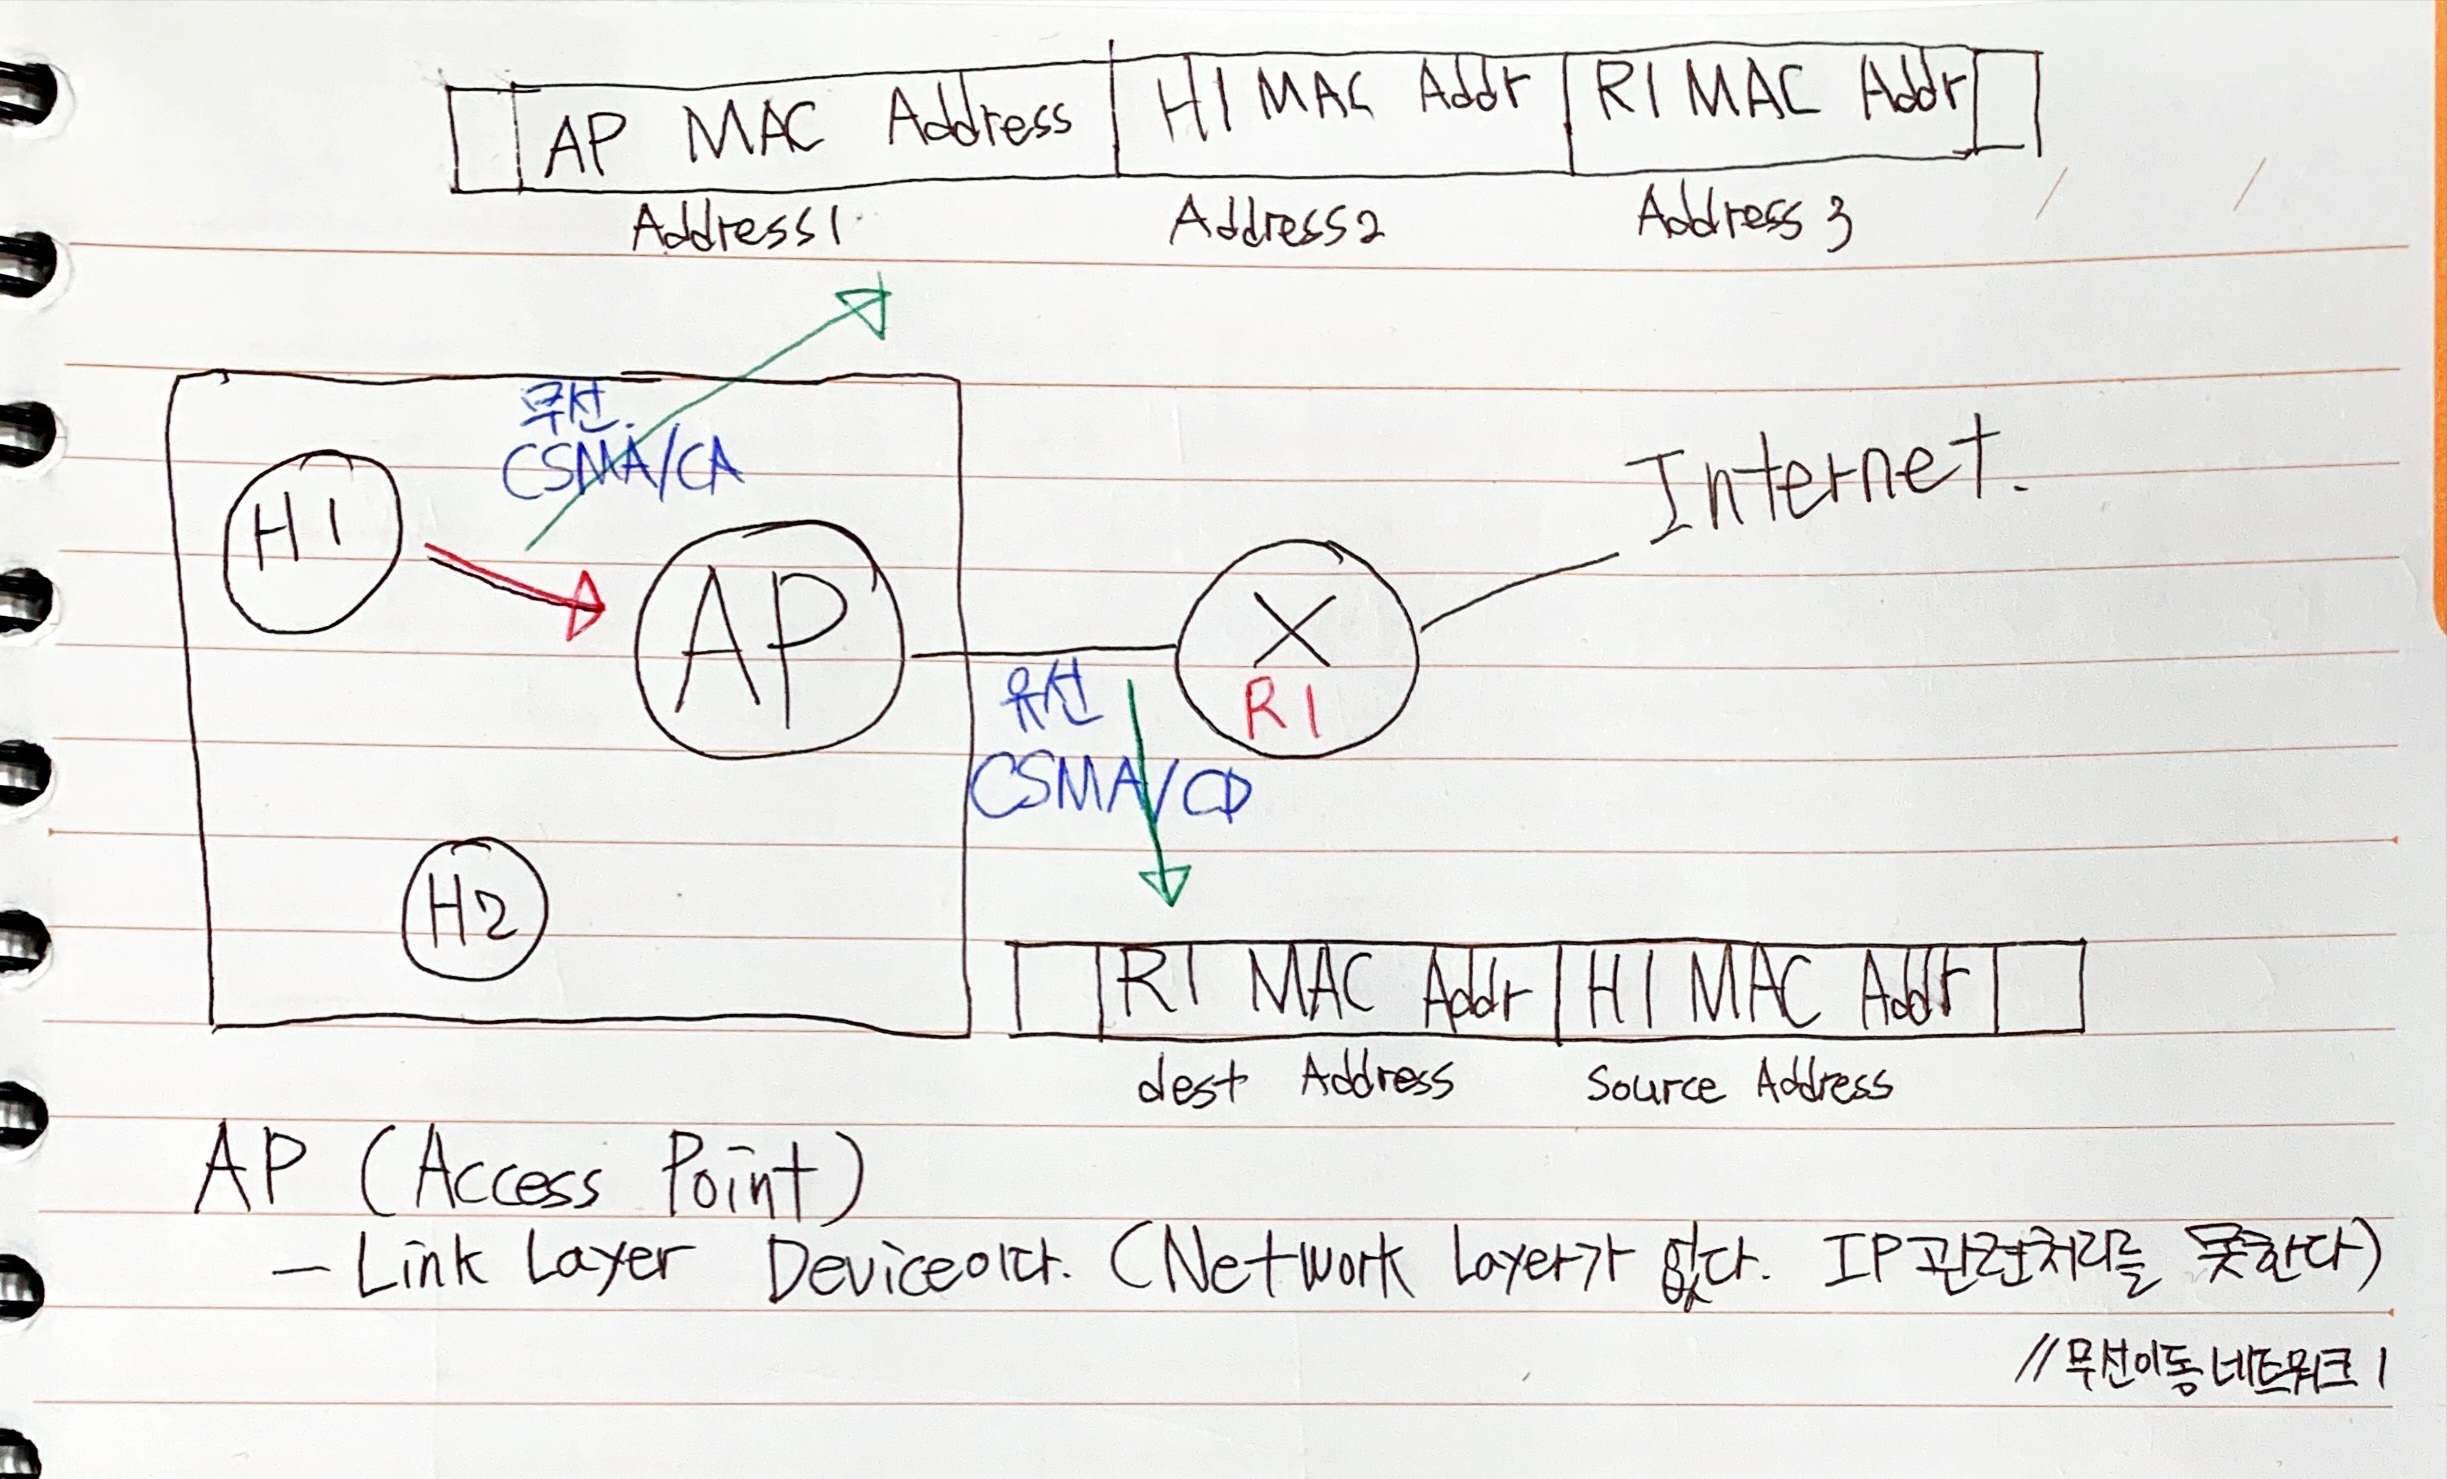 AP MAC Address H1 MAC Addr R1 MAC Addr
Address1 Address2 Address3
무선.
CSMA/CA
H1
AP
Internet.
X
R1
유선
CSMA/CD
H2
R1 MAC Addr H1 MAC Addr
dest Address Source Address
AP (Access Point)
- Link Layer Device이다. (Network Layer가 없다. IP관련처리를 못한다)
//무선이동네트워크1